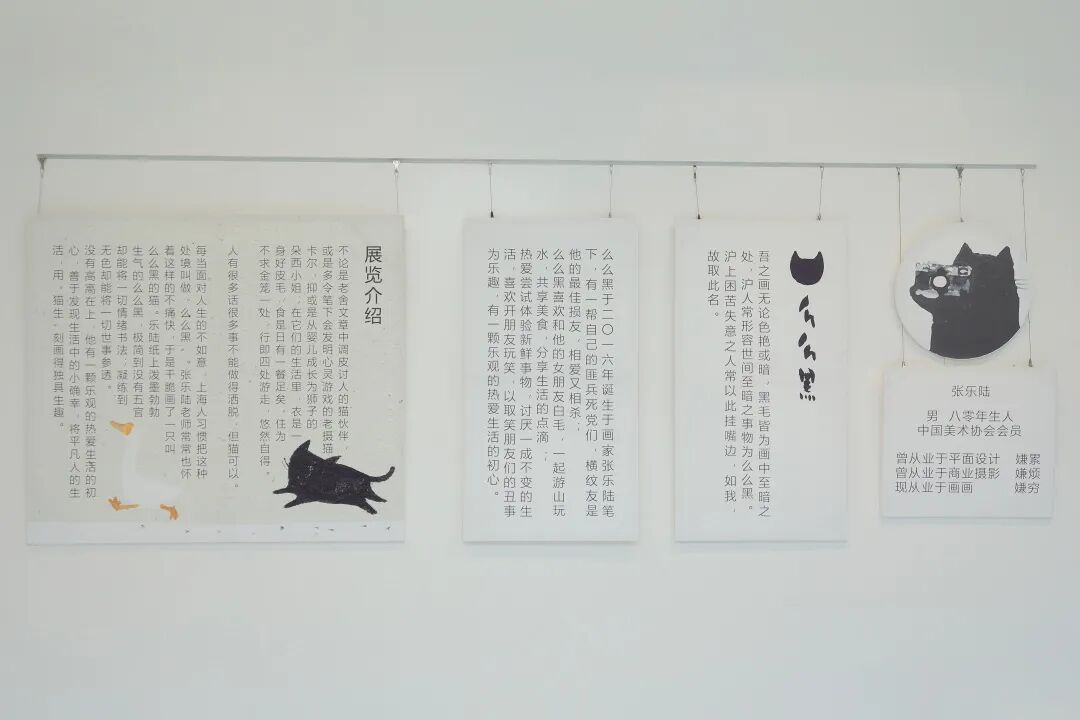 展览介绍
不论是老舍文章中调皮讨人的猫伙伴，
或是多令笔下会发明心灵游戏的老摄猫
卡尔，抑或是从婴儿成长为狮子的
朵西小姐，在它们的生活里，衣是一
身好皮毛，食是日有一餐足矣，住为
不求金笼一处，行即四处游走，悠然自得。
人有很多话很多事不能做得洒脱，但猫可以。
每当面对人生的不如意，上海人习惯把这种
处境叫做“么么黑”。张乐陆老师常常也怀
着这样的不痛快，于是干脆画了一只叫
么么黑的猫。乐陆纸上泼墨勃勃
生气的么么黑，极简到没有五官
却能将一切情绪书法，凝练到
无色却能将一切世事参透。
没有高高在上，他有一颗乐观的热爱生活的初
心，善于发现生活中的小确幸，将平凡人的生
活，用“猫生”刻画得独具生趣。
么么黑于二〇一六年诞生于画家张乐陆笔
下，有一帮自己的匪兵死党们，横纹友是
他的最佳损友，相爱又相杀；
么么黑喜欢和他的女朋友白毛，一起游山玩
水，共享美食，分享生活的点滴；
热爱尝试体验新鲜事物，讨厌一成不变的生
活，喜欢开朋友玩笑，以取笑朋友们的丑事
为乐趣，有一颗乐观的热爱生活的初心。
么么黑
吾之画无论色艳或暗，黑毛皆为画中至暗之
处，沪人常形容世间至暗之事物为么么黑。
沪上困苦失意之人常以此挂嘴边，如我，
故取此名。
张乐陆
男 八零年生人
中国美术协会会员
曾从业于平面设计 嫌累
曾从业于商业摄影 嫌烦
现从业于画画 嫌穷